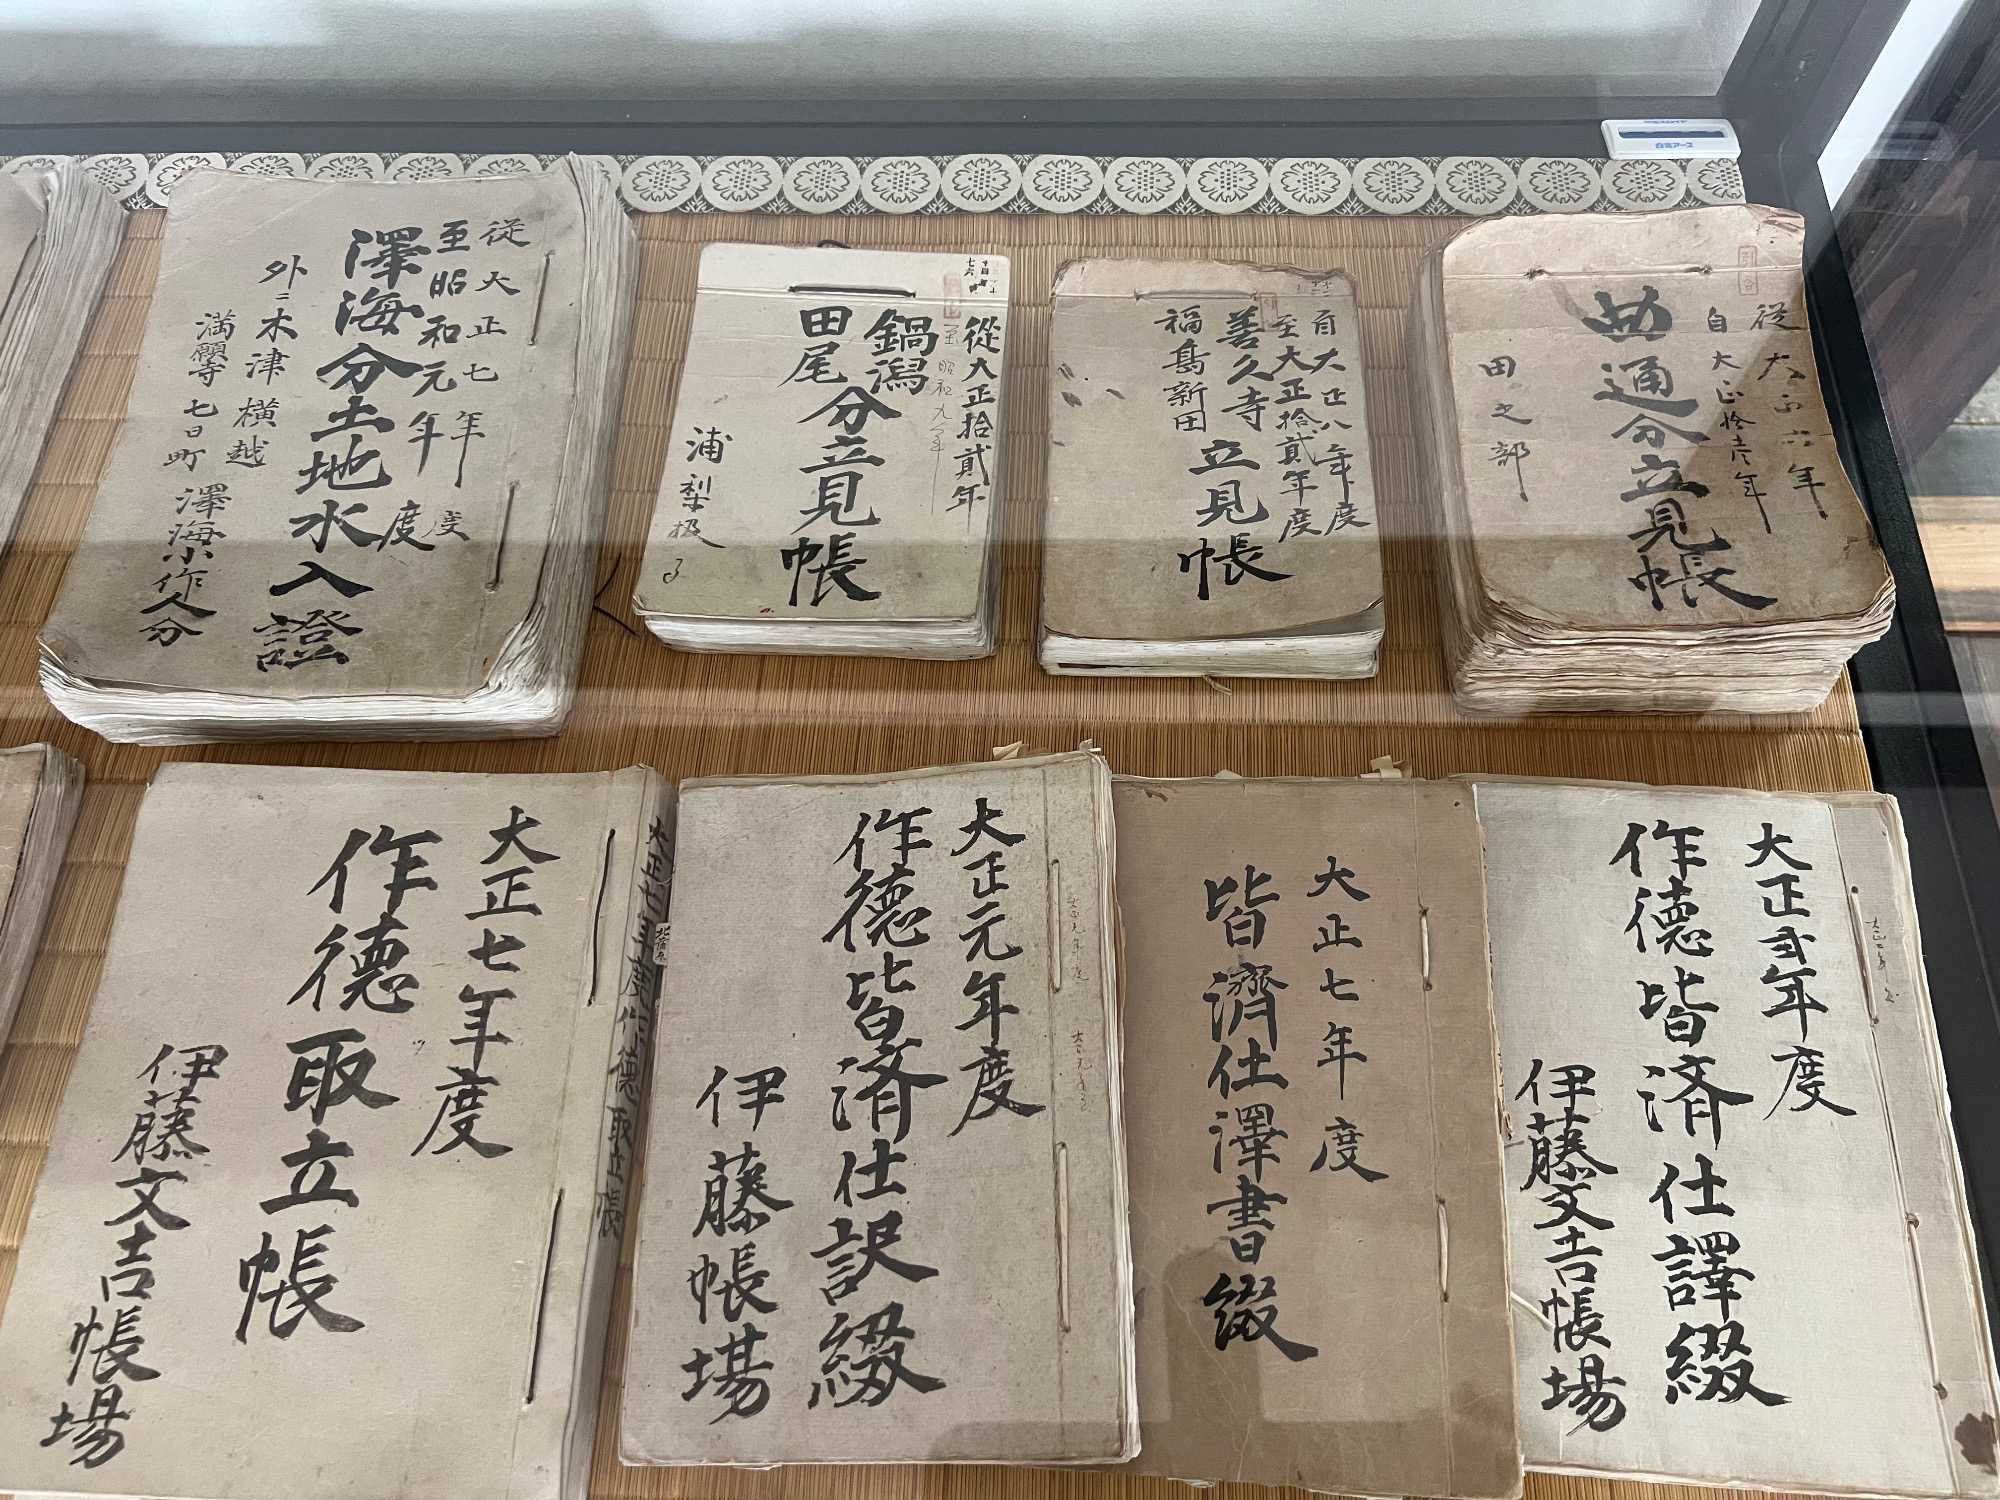 従大正七年度
至昭和元年度
澤海分土地水入證
外ニ木津横越
満願寺七日町澤海小作人分
従大正拾貳年
至昭和九年
鍋潟
田尾
分立見帳
浦梨扱
自大正八年度
至大正拾貳年度
善久寺
福島新田
立見帳
引合
従大正六年
自大正拾壱年
曲通分立見帳
田之部
白元アース
大正七年度
作德取立帳
伊藤文吉帳場
大正七年度作德取立帳
大正元年度
作德皆済仕訳綴
伊藤帳場
大正元年度
大正七年度
皆濟仕澤書綴
大正弐年度
作德皆済仕譯綴
伊藤文吉帳場